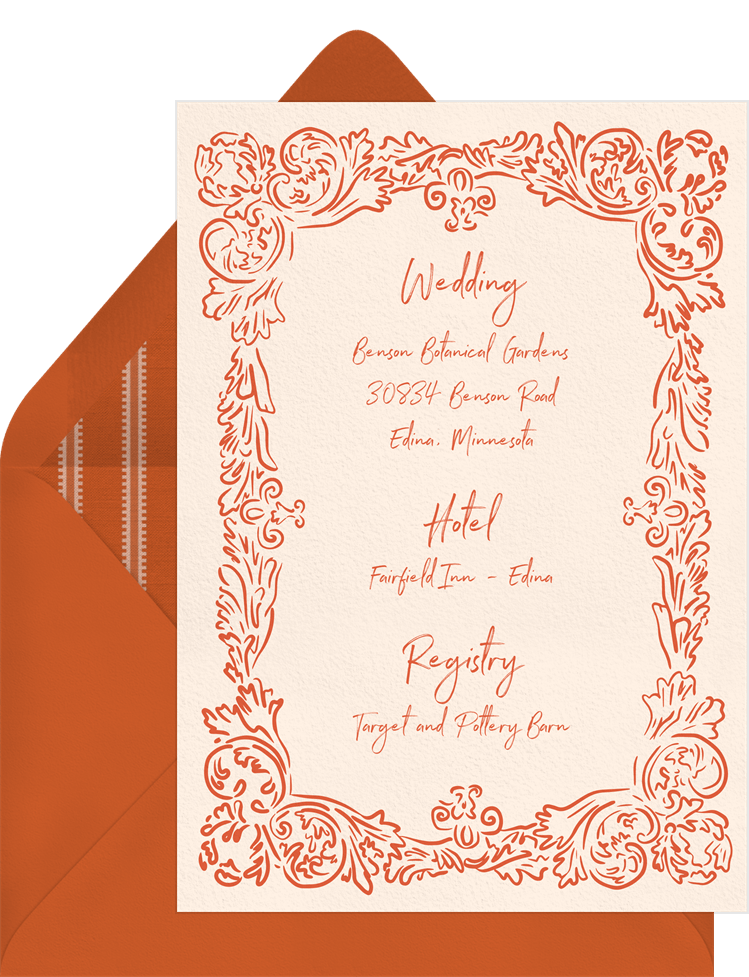 Wedding
Benson Botanical Gardens
30834 Benson Road
Edina, Minnesota
Hotel
Fairfield Inn - Edina
Registry
Target and Pottery Barn